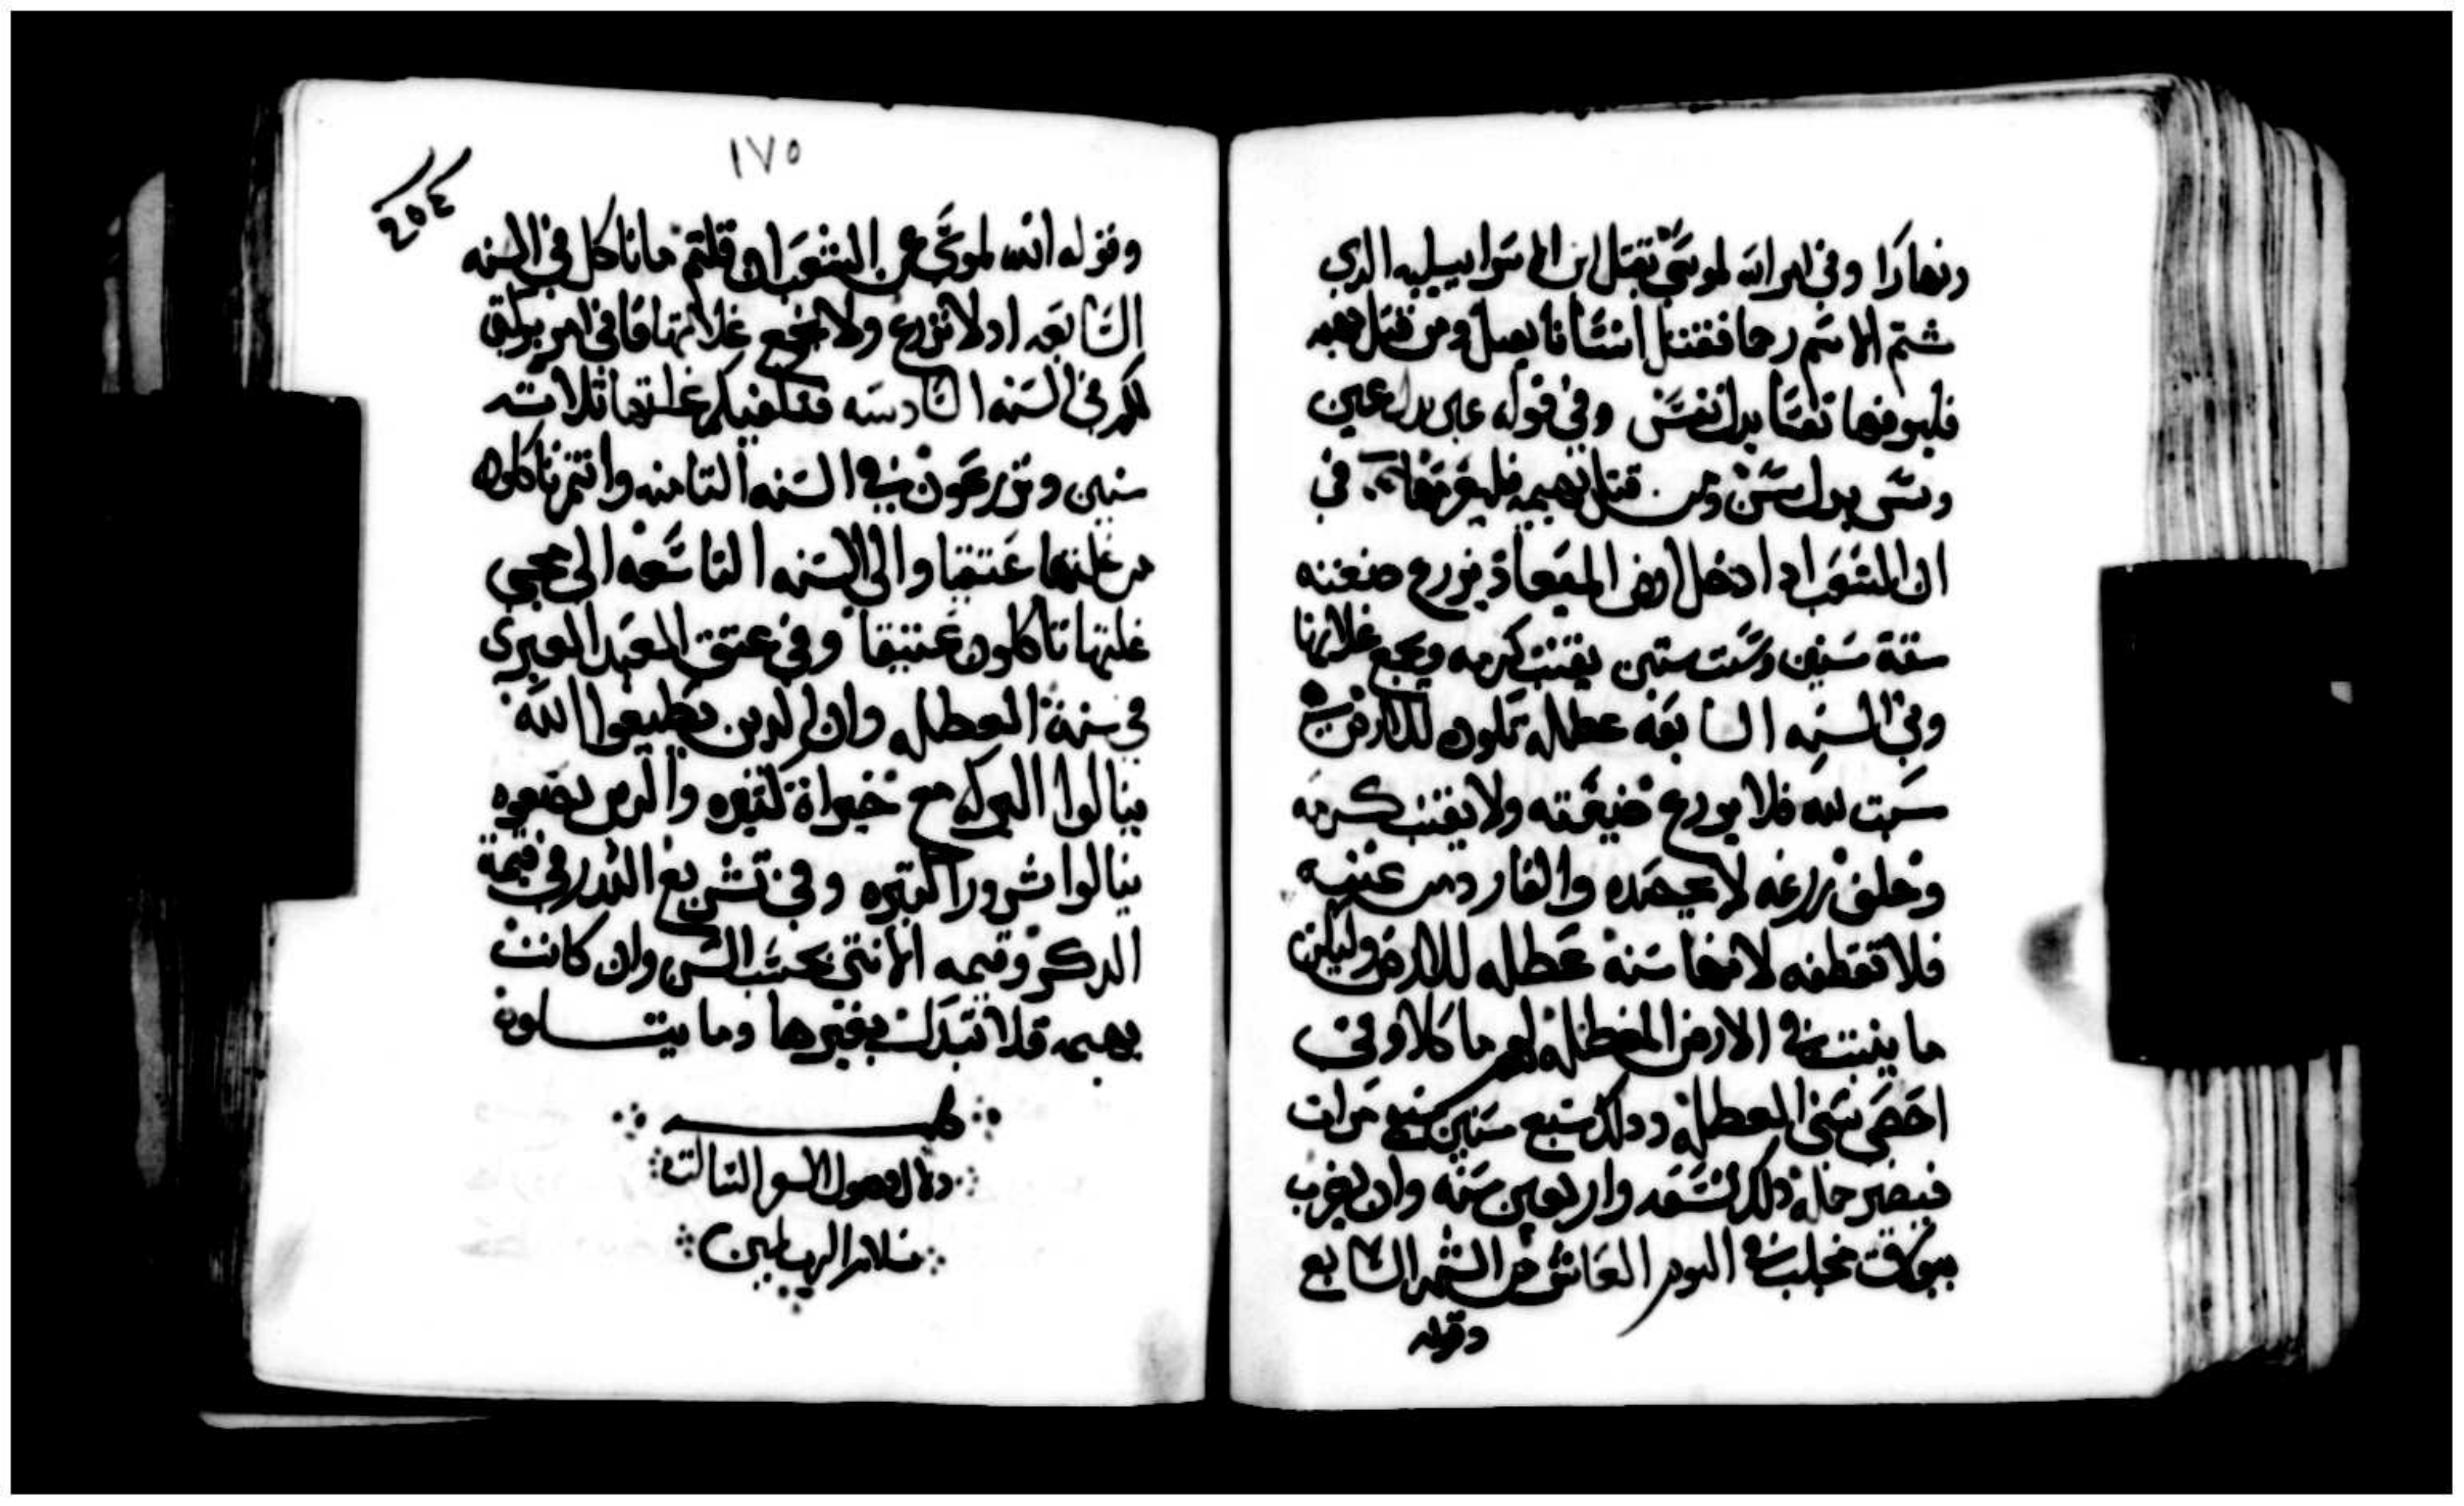 ونهارًا وفي امر الله لموسي بقتل ابن الاسراييليه الدي
شتم الاسم رجما فقتل انسانا يقتل ومن قتل بهيمه
فليوفها نفسًا بدل نفس وفي قوله عين بدل عين
وسن بدل سن ومن قتل بهيمه فليغرمها في
ان الشعب ادا دخل ارض الميعاد يزرع ضيعته
ستة سنين وست سنين يقنب كرمه ويجمع غلاتها
وفي السنه السابعه عطله تكون للارض
سبت لله فلا يزرع ضيعته ولا يقنب كرمه
وخلف زرعه لا يحصده والقار من عنبه
فلا تقطفه لانها سنة عطله للارض وليكن
ما ينبت في الارض المعطله لهم ماكلا وفي
احصي سني العطله ودلك سبع سنين سبع مرات
فيصير جملة دلك تسعه واربعين سنه وان يضرب
ببوقات مجلبه في اليوم العاشر من الشهر السابع
وقوله
١٧٥
٢٥٤
وقوله الله لموسي عن الشعب ان قلتم ماناكل في السنه
السابعه اد لا نزرع ولا نجمع غلاتها فاني امر بركتي
لكم في السنه السادسه فتكفيكم غلتها ثلاثه
سنين وتزرعون في السنه التامنه وانتم تاكلون
من غلتها عتيقا والي السنه التاسعه الي مجي
غلتها تاكلون عتيقا وفي عتق العبد العبري
في سنة العطله وان الدين يطيعوا الله
ينالوا البركه مع خيراة كتيره والدين يعصوه
ينالوا شرورا كتيره وفي تشريع الندر في قيمة
الدكر وقيمه الانتي بحسب السن وان كانت
بهيمه فلا تبدل بغيرها وما يتلون
كمل فصول السفر التالت
بسلام الرب امين